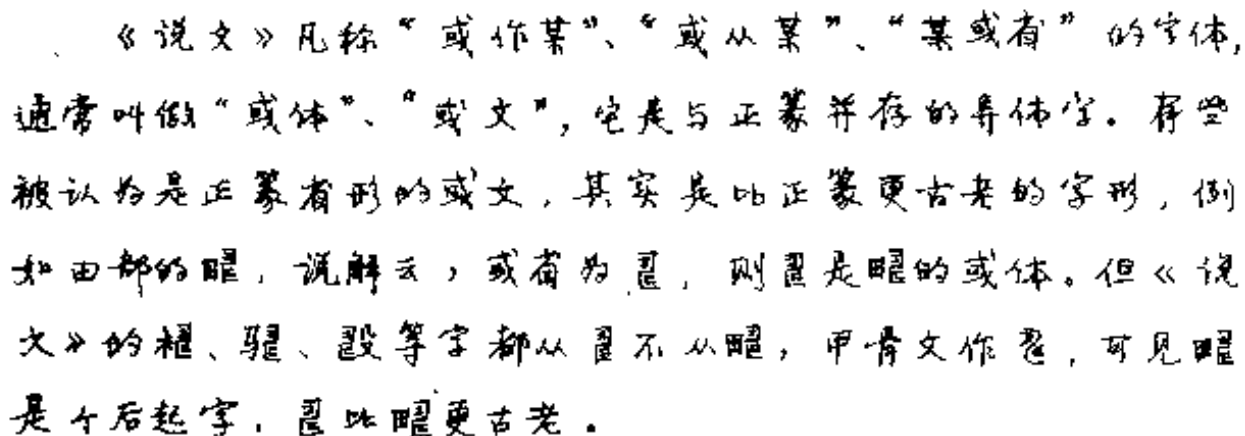 《说文》凡称“或作某”、“或从某”、“某或省”的字体,
通常叫做“或体”、“或文”,它是与正篆并存的异体字。有些
被认为是正篆省形的或文,其实是比正篆更古老的字形,例
如田部的,说解云,或省为,则是的或体。但《说
文》的、、等字都从不从,甲骨文作,可见
是个后起字,比更古老。